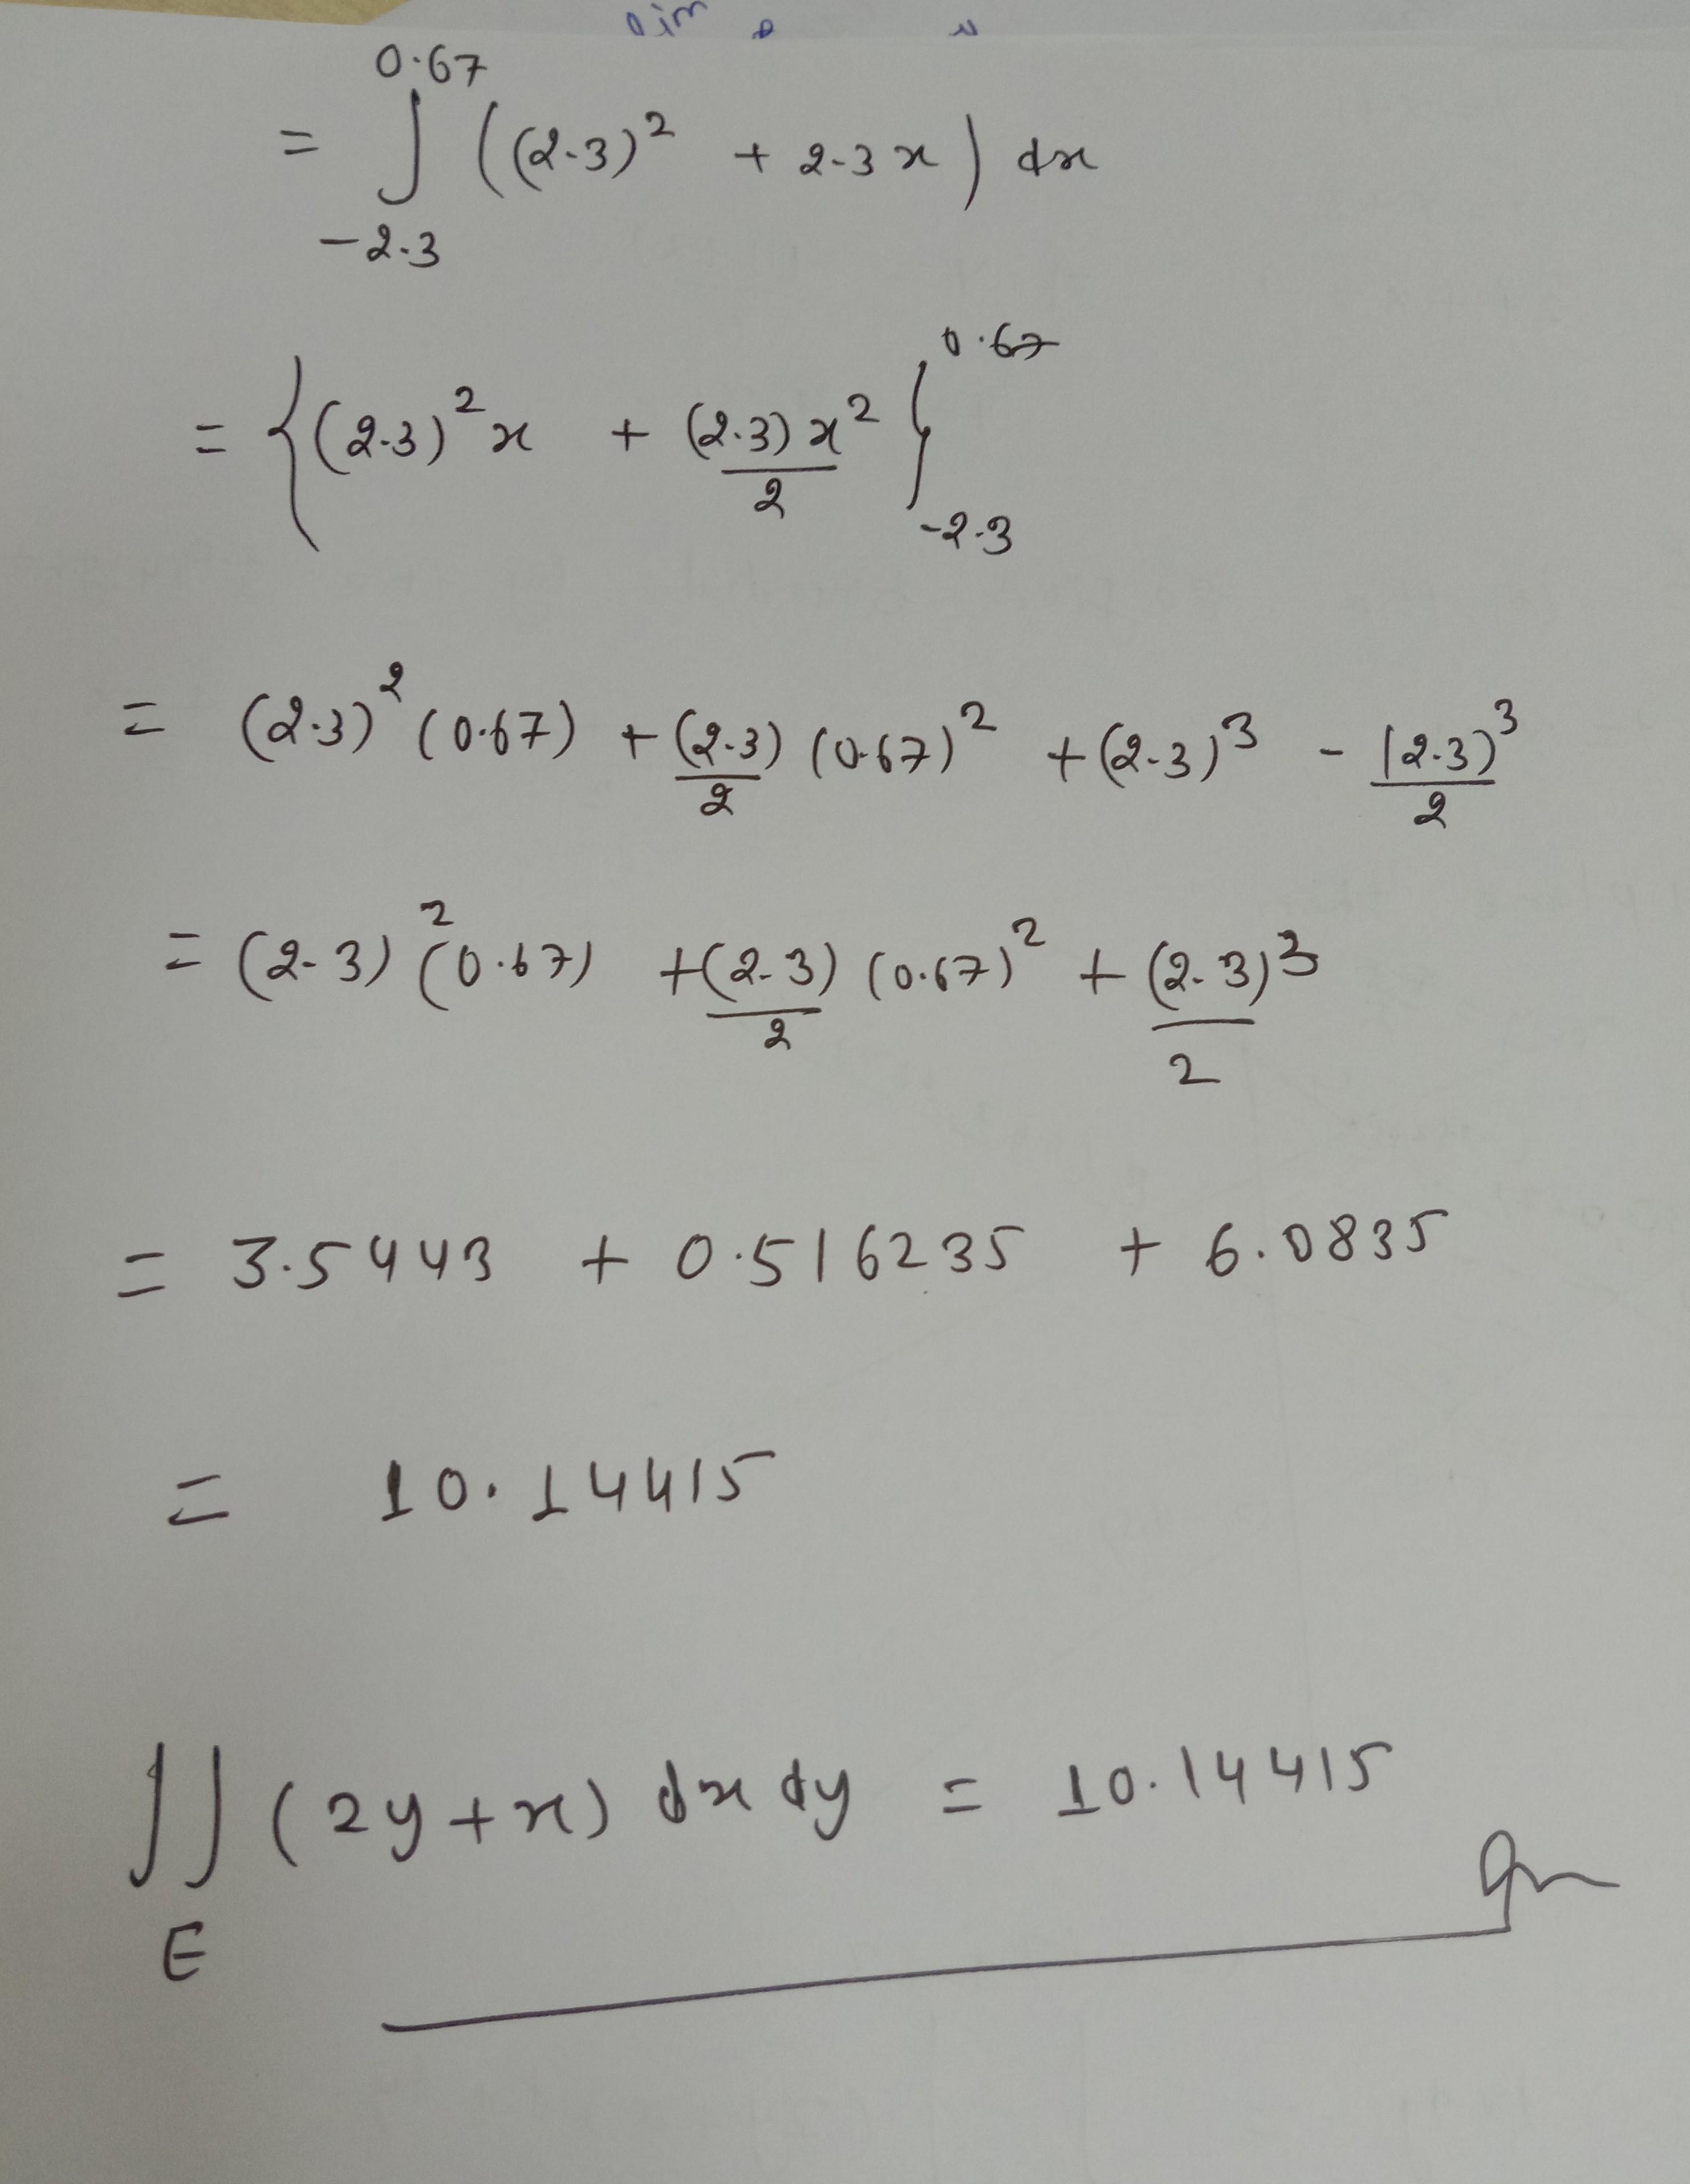 0.67
= ∫ ((2.3)² + 2.3x) dx
-2.3
0.67
= {(2.3)²x + (2.3)x²/2}
-2.3
= (2.3)²(0.67) + (2.3)/2 (0.67)² + (2.3)³ - (2.3)³/2
= (2.3)²(0.67) + (2.3)/2 (0.67)² + (2.3)³/2
= 3.5443 + 0.516235 + 6.0835
= 10.14415
∬ (2y+x) dx dy = 10.14415
E